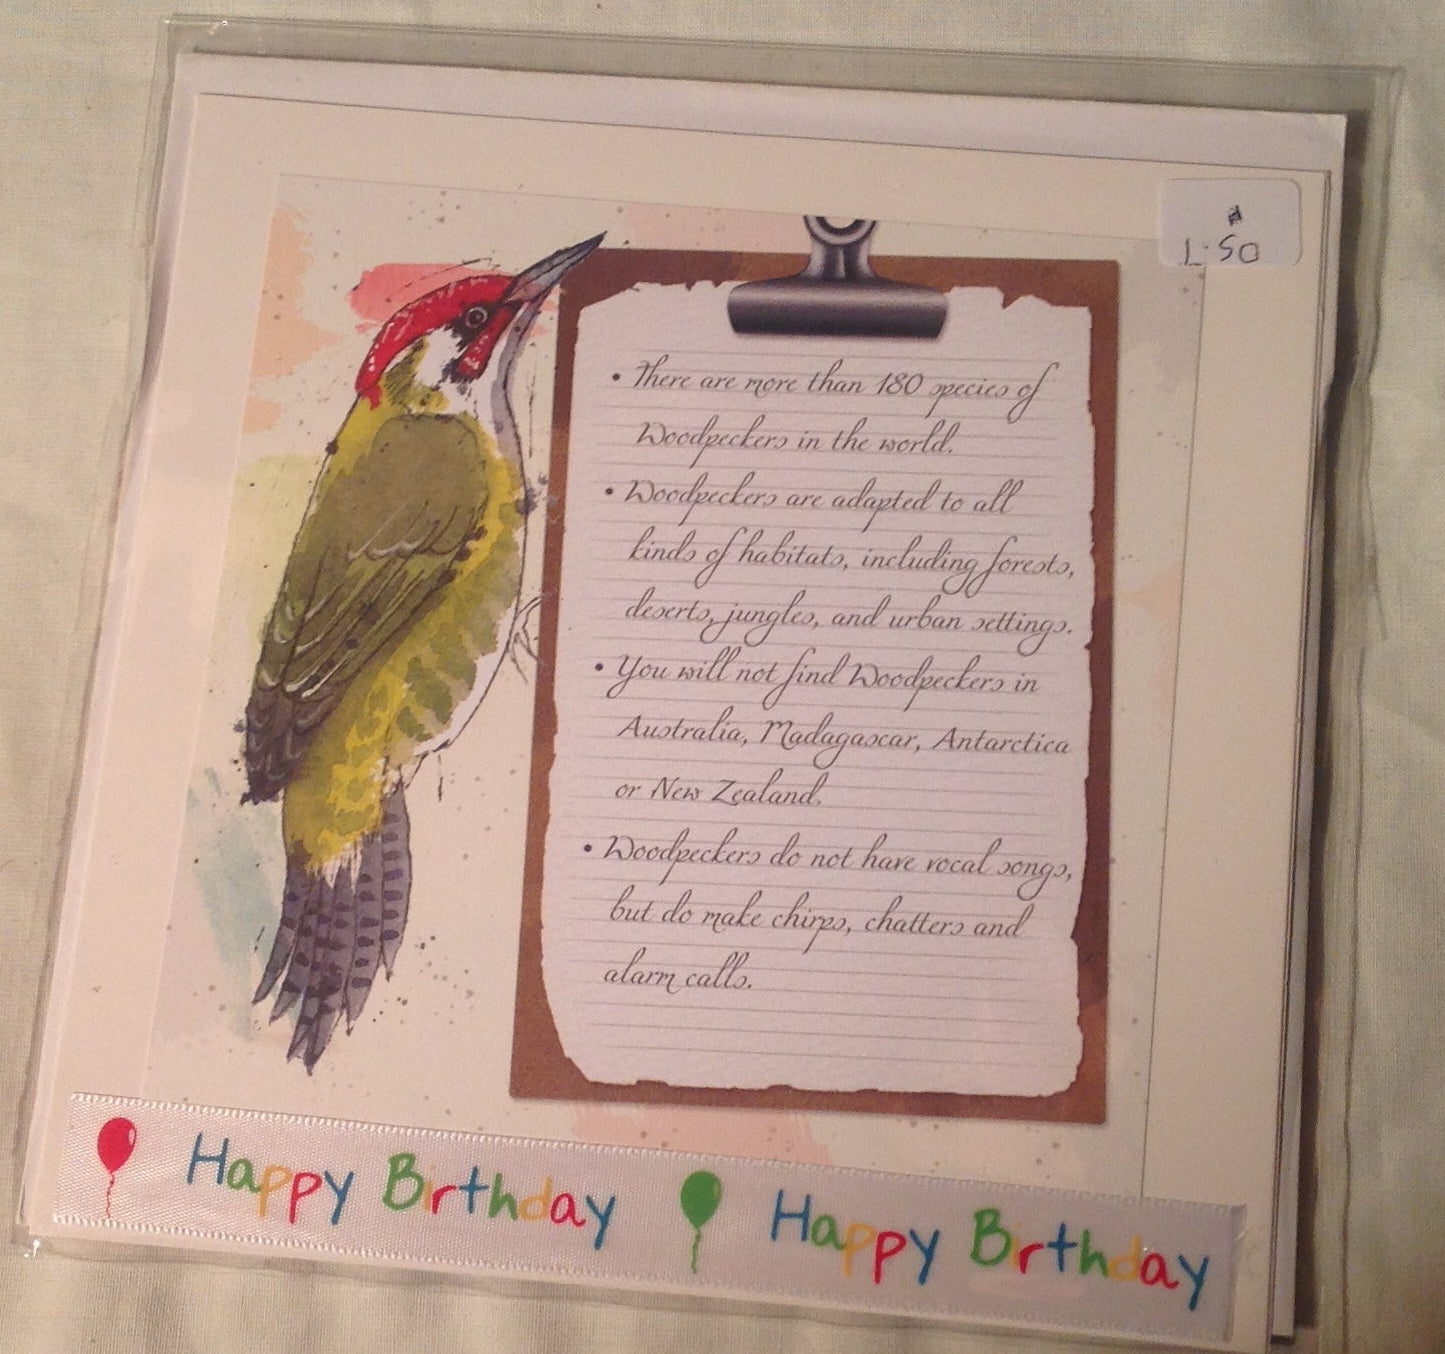 L·50
• There are more than 180 species of
Woodpeckers in the world.
• Woodpeckers are adapted to all
kinds of habitats, including forests,
deserts, jungles, and urban settings.
• You will not find Woodpeckers in
Australia, Madagascar, Antarctica
or New Zealand.
• Woodpeckers do not have vocal songs,
but do make chirps, chatters and
alarm calls.
Happy Birthday Happy Birthday